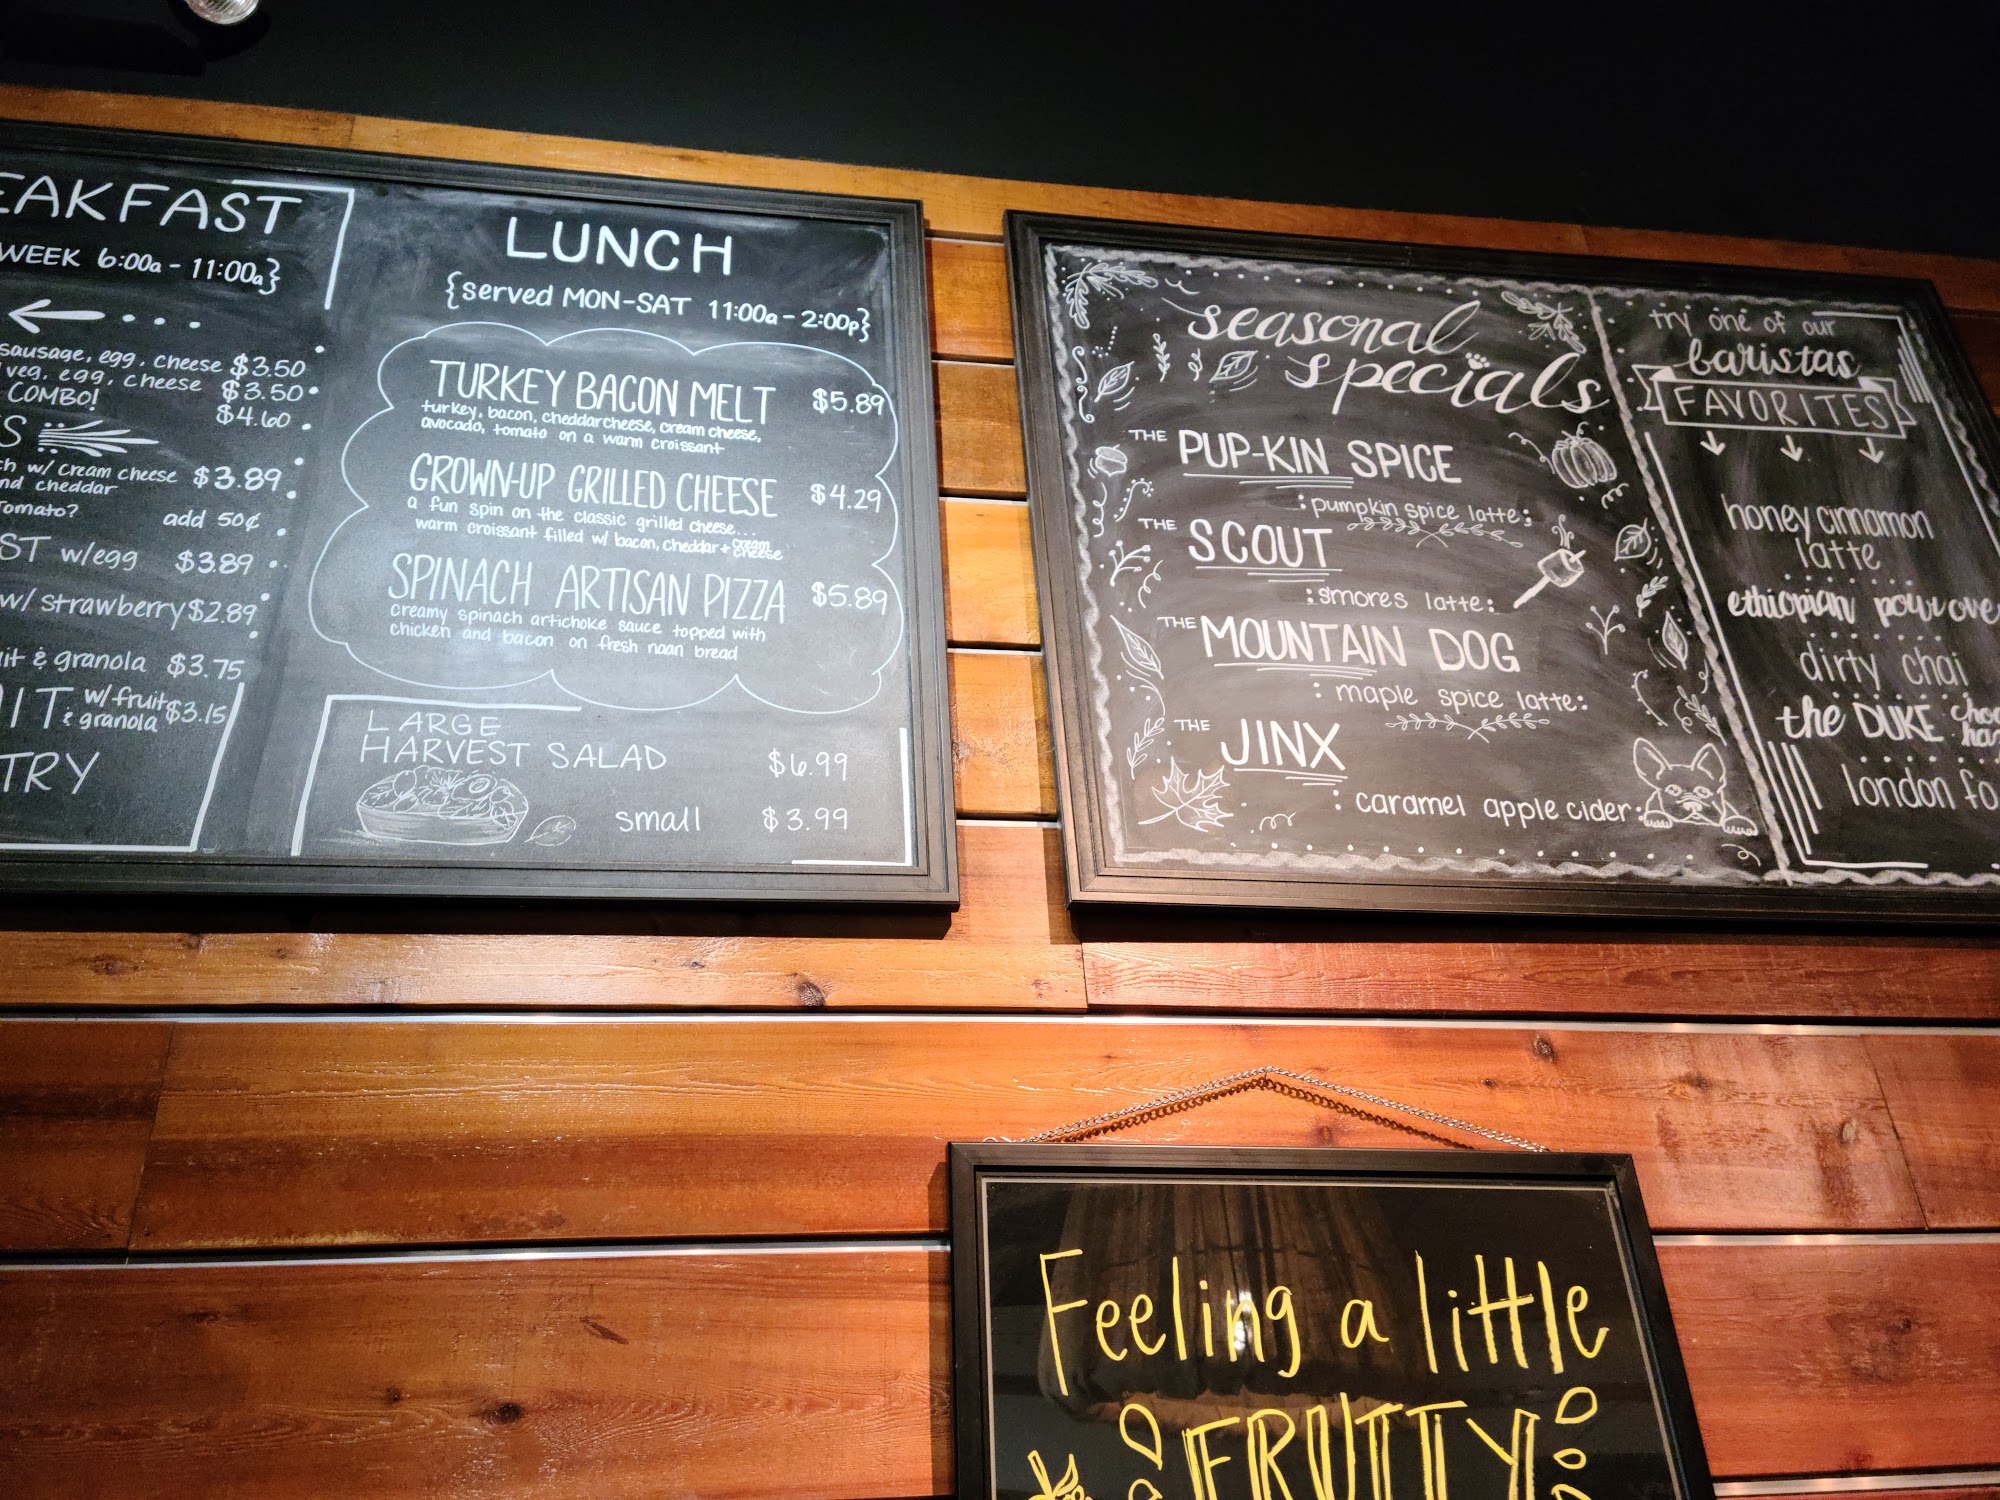 EAKFAST
WEEK 6:00a - 11:00a}
sausage, egg, cheese $3.50
veg, egg, cheese $3.50
COMBO! $4.60
S
w/ cream cheese $3.89
nd cheddar
Tomato? add 50¢
ST w/egg $3.89
w/ strawberry $2.89
it & granola $3.75
IT w/ fruit & granola $3.15
TRY
LUNCH
{served MON-SAT 11:00a - 2:00p}
TURKEY BACON MELT $5.89
turkey, bacon, cheddar cheese, cream cheese,
avocado, tomato on a warm croissant
GROWN-UP GRILLED CHEESE $4.29
a fun spin on the classic grilled cheese...
warm croissant filled w/ bacon, cheddar + cream cheese
SPINACH ARTISAN PIZZA $5.89
creamy spinach artichoke sauce topped with
chicken and bacon on fresh naan bread
LARGE
HARVEST SALAD $6.99
small $3.99
seasonal
specials
THE PUP-KIN SPICE
:pumpkin spice latte:
THE SCOUT
:smores latte:
THE MOUNTAIN DOG
:maple spice latte:
THE JINX
:caramel apple cider:
try one of our
baristas
FAVORITES
honey cinnamon
latte
ethiopian pour ove
dirty chai
the DUKE choc
haz
london fo
Feeling a little
FRUITY